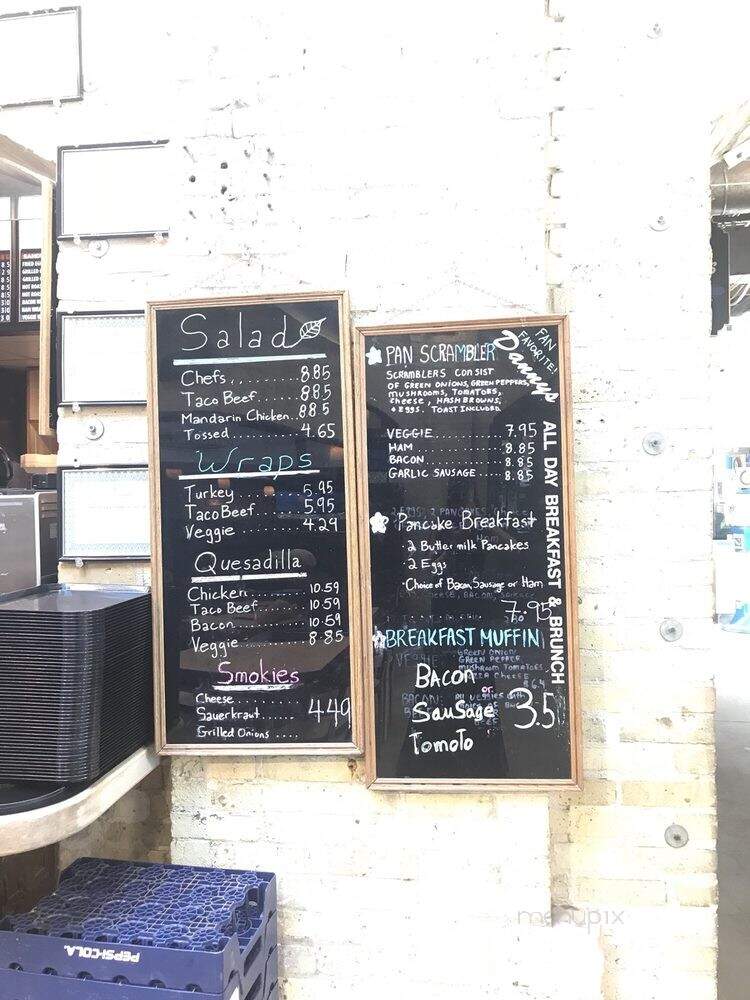 Salad
Chefs ......... 8.85
Taco Beef ....... 8.85
Mandarin Chicken.. 8.85
Tossed ......... 4.65
Wraps
Turkey ........ 5.95
Taco Beef ....... 5.95
Veggie ....... 4.29
Quesadilla
Chicken ....... 10.59
Taco Beef ...... 10.59
Bacon ....... 10.59
Veggie ....... 8.85
Smokies
Cheese ........
Sauerkraut ...... 4.49
Grilled Onions ....
FAN FAVORITE!
Dannys
ALL DAY BREAKFAST & BRUNCH
PAN SCRAMBLER
SCRAMBLERS CONSIST
OF GREEN ONIONS, GREEN PEPPERS,
MUSHROOMS, TOMATOES,
CHEESE, HASHBROWNS,
+ EGGS. TOAST INCLUDED
VEGGIE .......... 7.95
HAM ........... 8.85
BACON .......... 8.85
GARLIC SAUSAGE .... 8.85
Pancake Breakfast
2 Buttermilk Pancakes
2 Eggs
Choice of Bacon, Sausage or Ham
7.95
BREAKFAST MUFFIN
BACON
or
SauSage 3.5
Tomoto
PEPSI-COLA
menupix